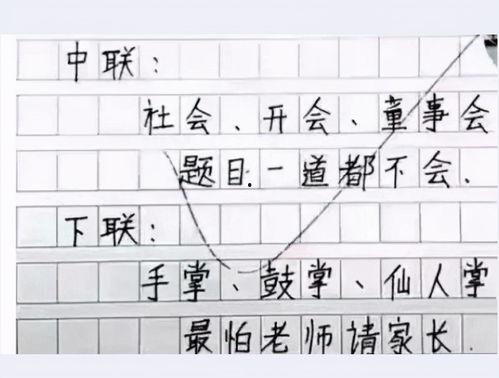 中联：
社会、开会、童事会
题目一道都不会.
下联：
手掌、鼓掌、仙人掌
最怕老师请家长.